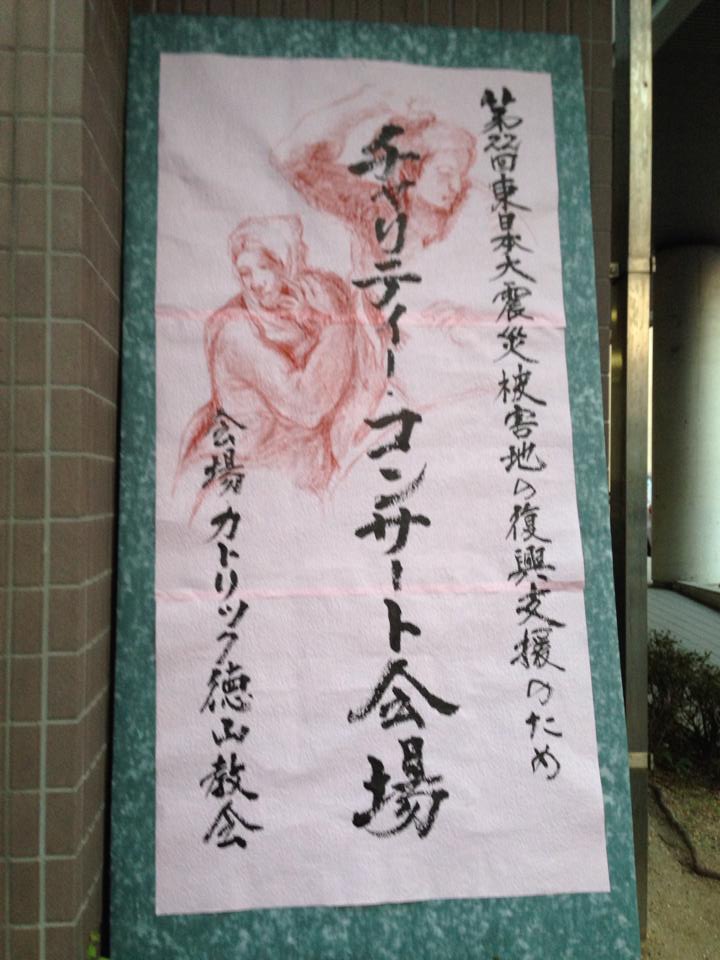 第22回東日本大震災被害地の復興支援のため
チャリティー・コンサート会場
会場カトリック徳山教会